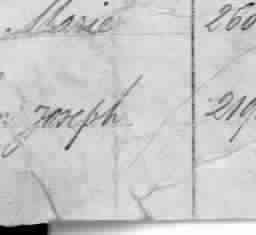 Marie 260
Joseph 219